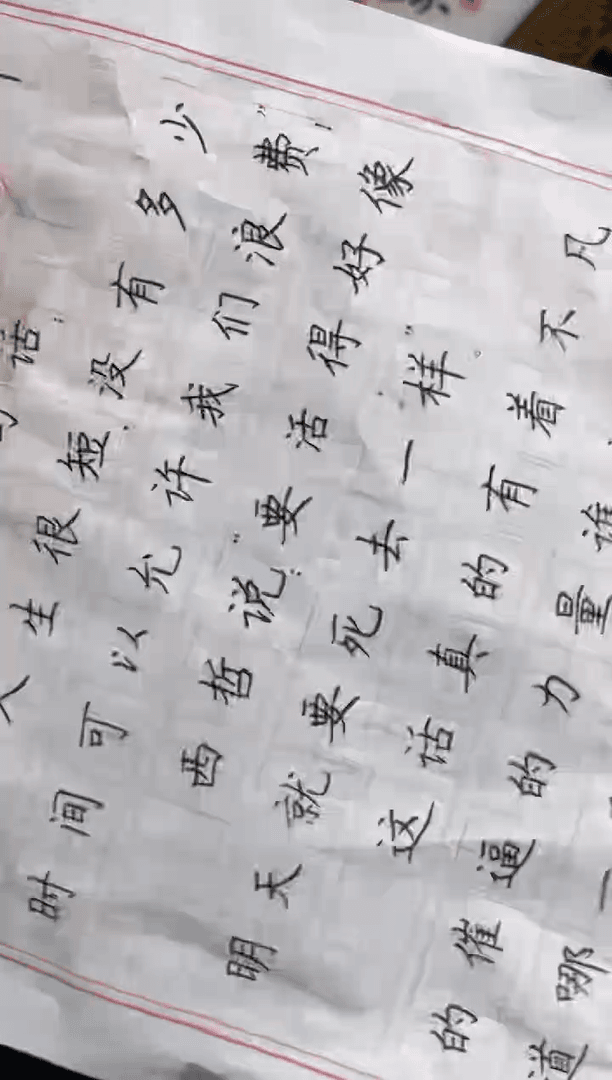 话:
人生很短,没有多少
时间可以允许我们浪费"!
西哲说:"要活得好像
明天就要死去一样"。
这话真的有着不凡
的催逼的力量谁
道哪一